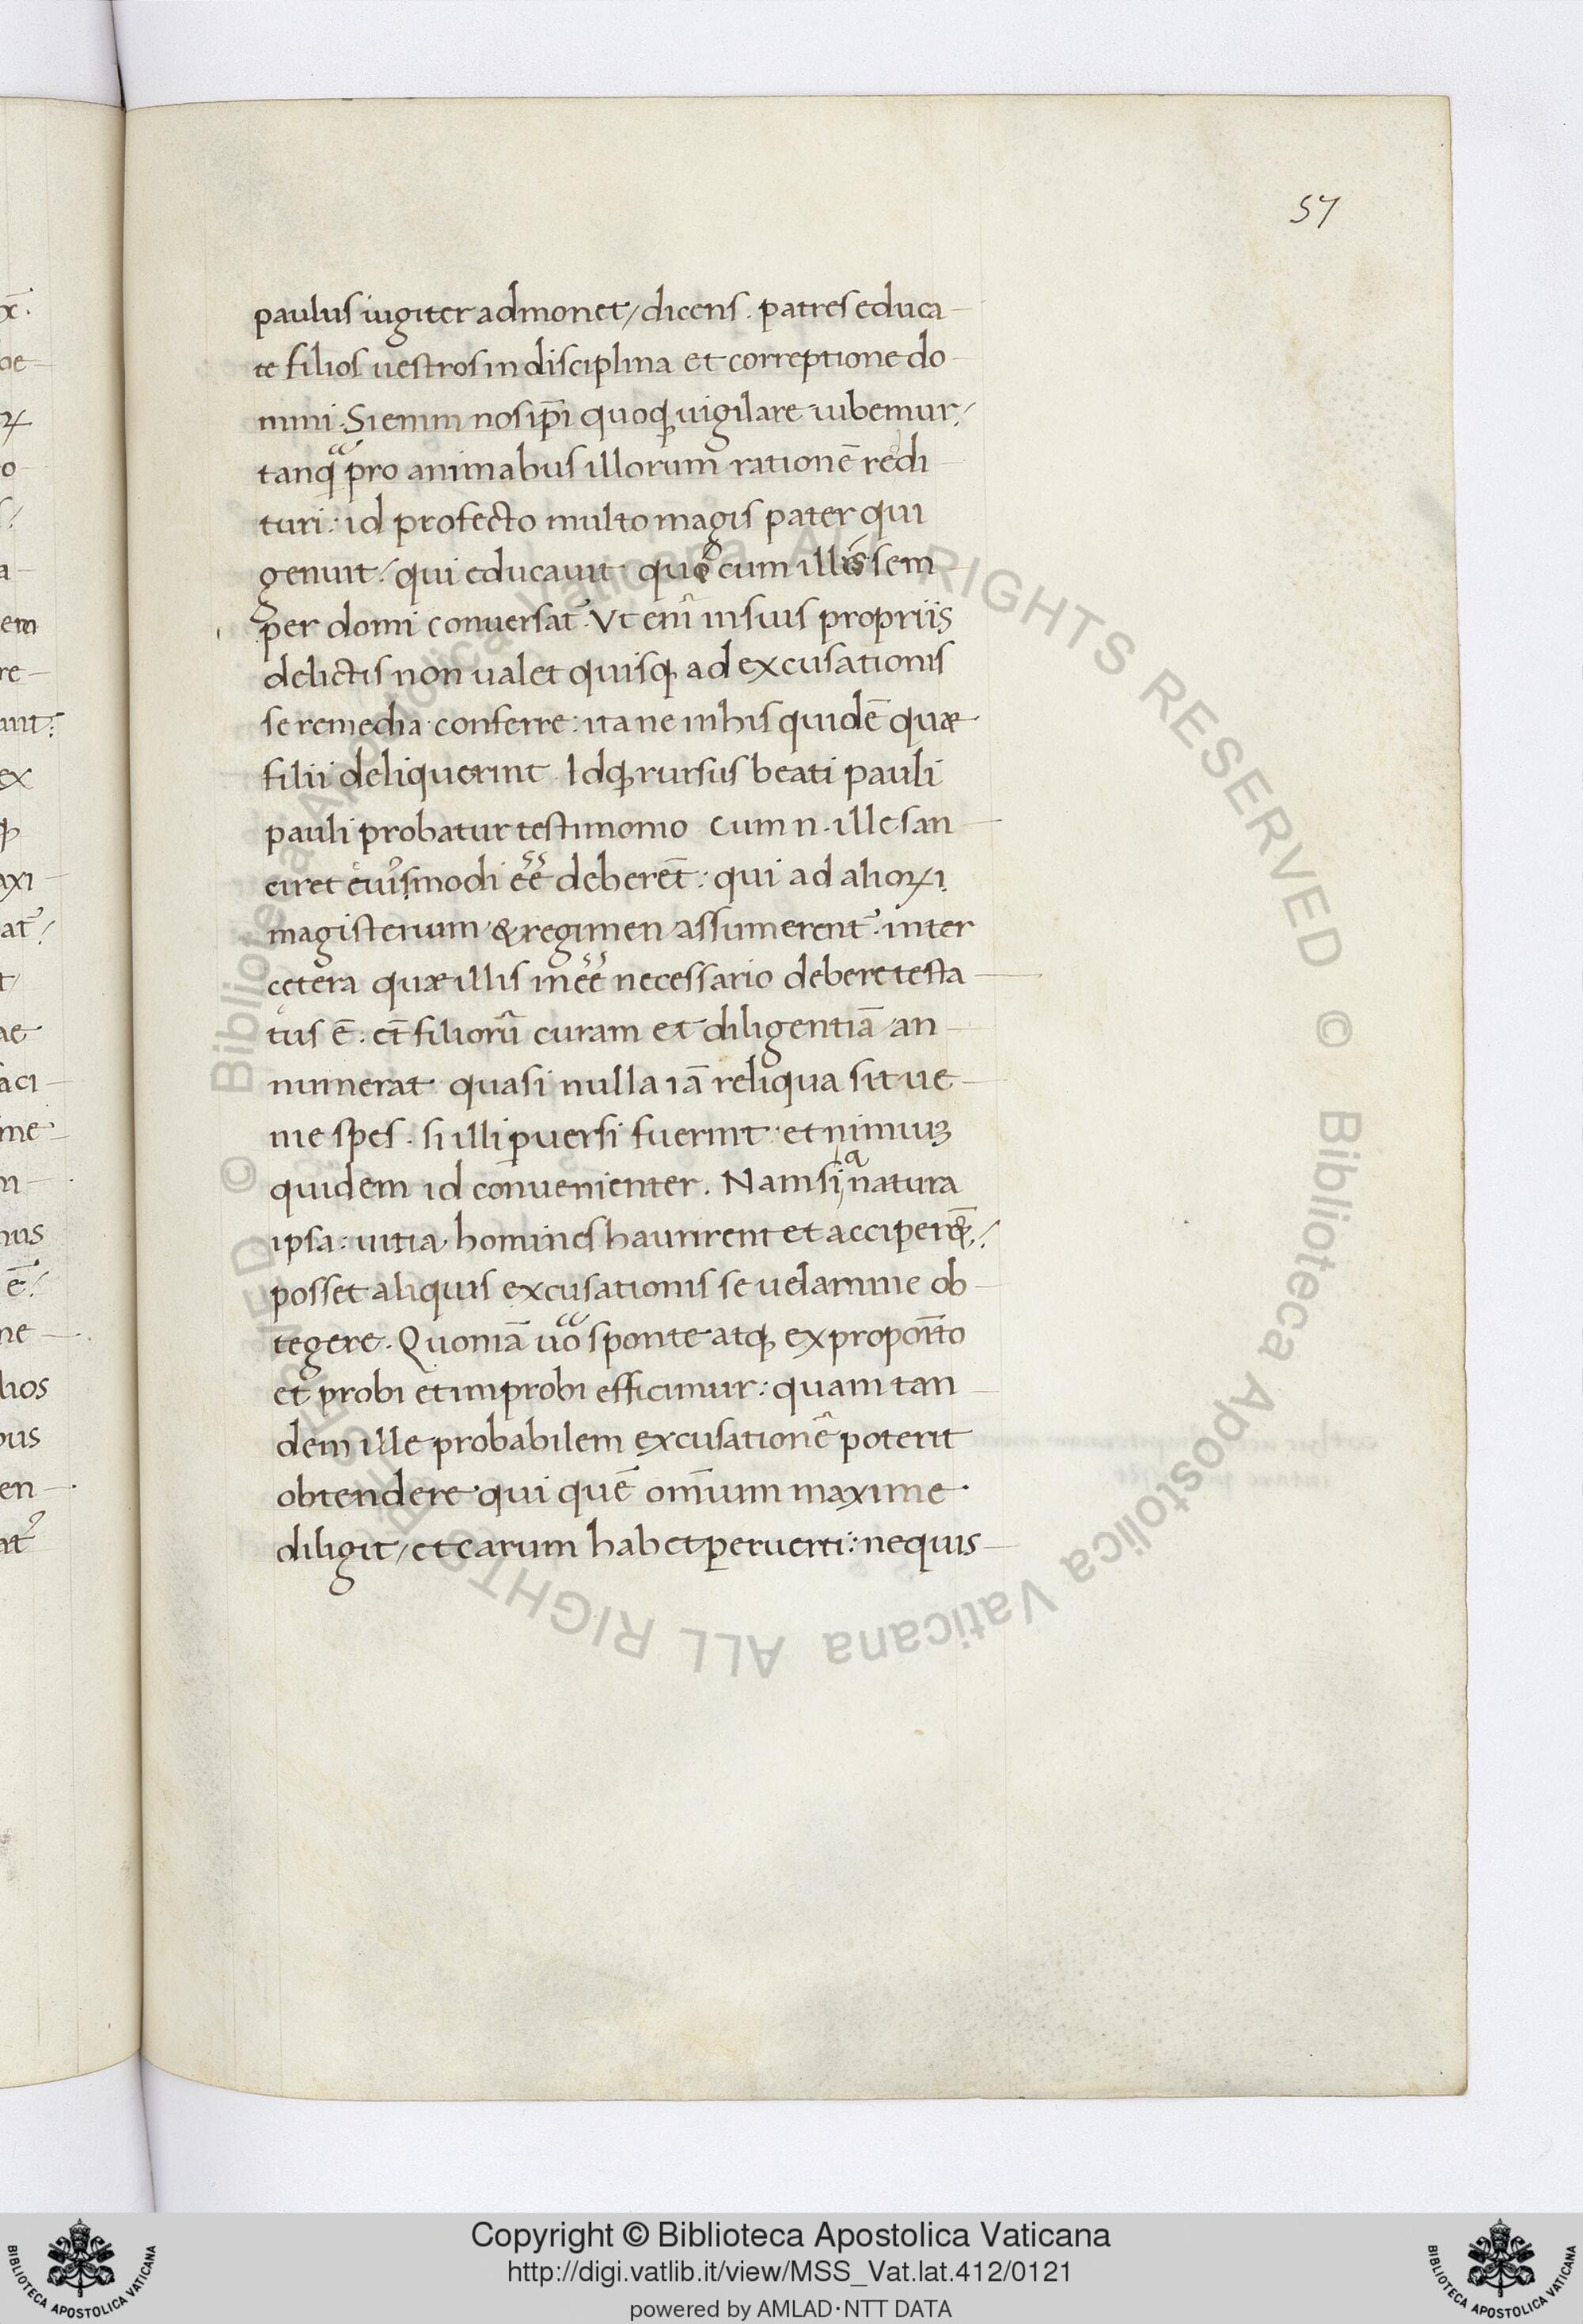 57
paulus iugiter admonet/ dicens. patres educa
te filios uestros in disciplina et correptione do
mini. Si enim nos ip̄i quoq; uigilare iubemur/
tanq̃ pro animabus illorum rationē redi
turi: id profecto multo magis pater qui
genuit/ qui educauit quiq; cum illis sem
per domi conuersat᷑. Vt enī in suis propriis
delictis non ualet quisq; ad excusationis
se remedia conferre: ita ne in his quidē quæ
filii deliquerint. Idq; rursus beati pauli
pauli probatur testimonio. Cum n. ille san
ciret eiusmodi ēē deberēt: qui ad alioꝝ
magisterium & regimen assumerent᷑. inter
cetera quæ illis inēē necessario debere testa
tus ē: et̄ filiorū curam et diligentiā an
numerat quasi nulla iā reliqua sit ue
nie spes. si illi ꝑuersi fuerint: et nimiuʒ
quidem id conuenienter. Nam si a natura
ipsa: uitia homines haurirent et acciperēt/
posset aliquis excusationis se uelamine ob
tegere. Quoniā uo sponte atq; ex proponto
et probi et improbi efficimur: quam tan
dem ille probabilem excusationē poterit
obtendere qui quē omīum maxime
diligit/ et carum habet peruerti: nequis
© Biblioteca Apostolica Vaticana ALL RIGHTS RESERVED © Biblioteca Apostolica Vaticana ALL RIGHTS RESERVED
Copyright © Biblioteca Apostolica Vaticana
http://digi.vatlib.it/view/MSS_Vat.lat.412/0121
powered by AMLAD·NTT DATA
BIBLIOTECA APOSTOLICA VATICANA
BIBLIOTECA APOSTOLICA VATICANA